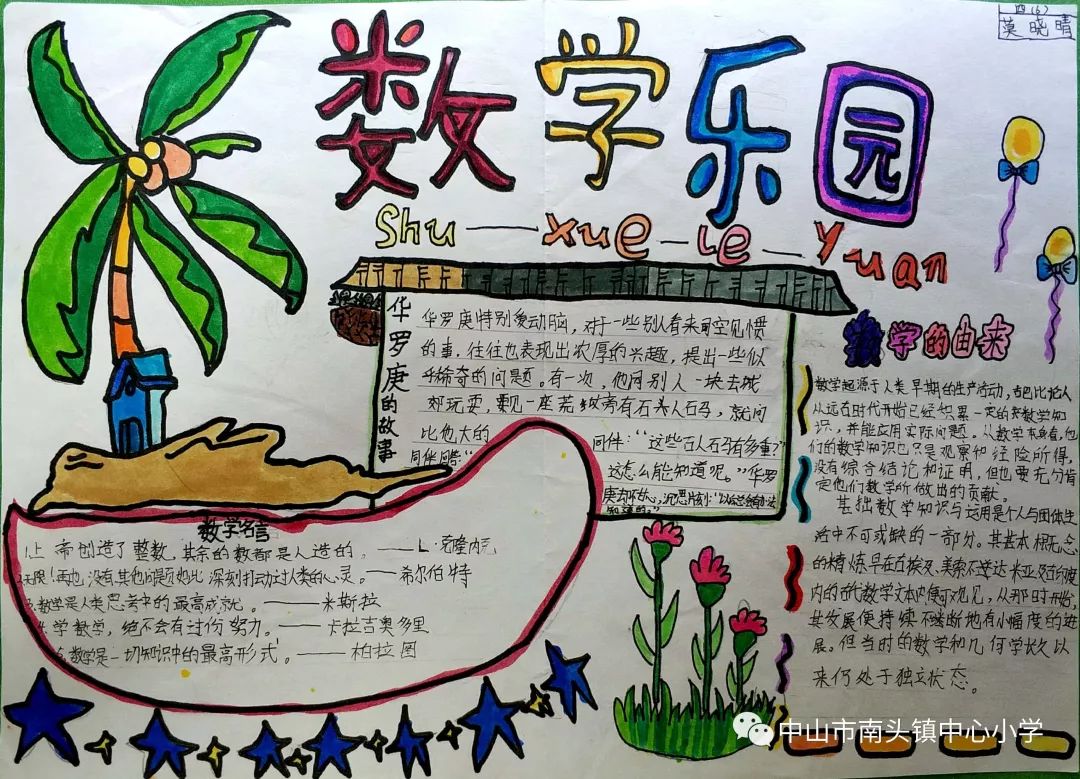 四(6)
莫晓晴
数学乐园
Shu — xue — le — Yuan
华罗庚的故事
华罗庚特别爱动脑，对于一些别人看来司空见惯
的事，往往也表现出浓厚的兴趣，提出一些似
乎稀奇的问题。有一次，他同别人一块去城
郊玩耍，见一座荒坟旁有石头人石马，就问
比他大的
同伴："这些石人石马有多重?"
这怎么能知道呢。"华罗
数学的由来
数学起源于人类早期的生产活动，古巴比伦人
从远古时代开始已经积累一定的数学知
识，并能应用实际问题。从数学本身看，他
们的数学知识也只是观察和经验所得，
没有综合结论和证明，但也要充分肯
定他们数学所做出的贡献。
基础数学知识与运用是个人与团体生
活中不可或缺的一部分。其基本概念
的精炼早在古埃及、美索不达米亚及古印度
内的古代数学文本内便可观见，从那时开始，
其发展便持续不断地有小幅度的进
展。但当时的数学和几何学长久以
来仍处于独立状态。
数学名言
1.上帝创造了整数，其余的数都是人造的。——L·克隆内克
无限！再也没有其他问题如此深刻打动过人类的心灵。——希尔伯特
数学是人类思考中的最高成就。——米斯拉
4.学数学，绝不会有过份努力。——卡拉吉奥多里
数学是一切知识中的最高形式。——柏拉图
中山市南头镇中心小学